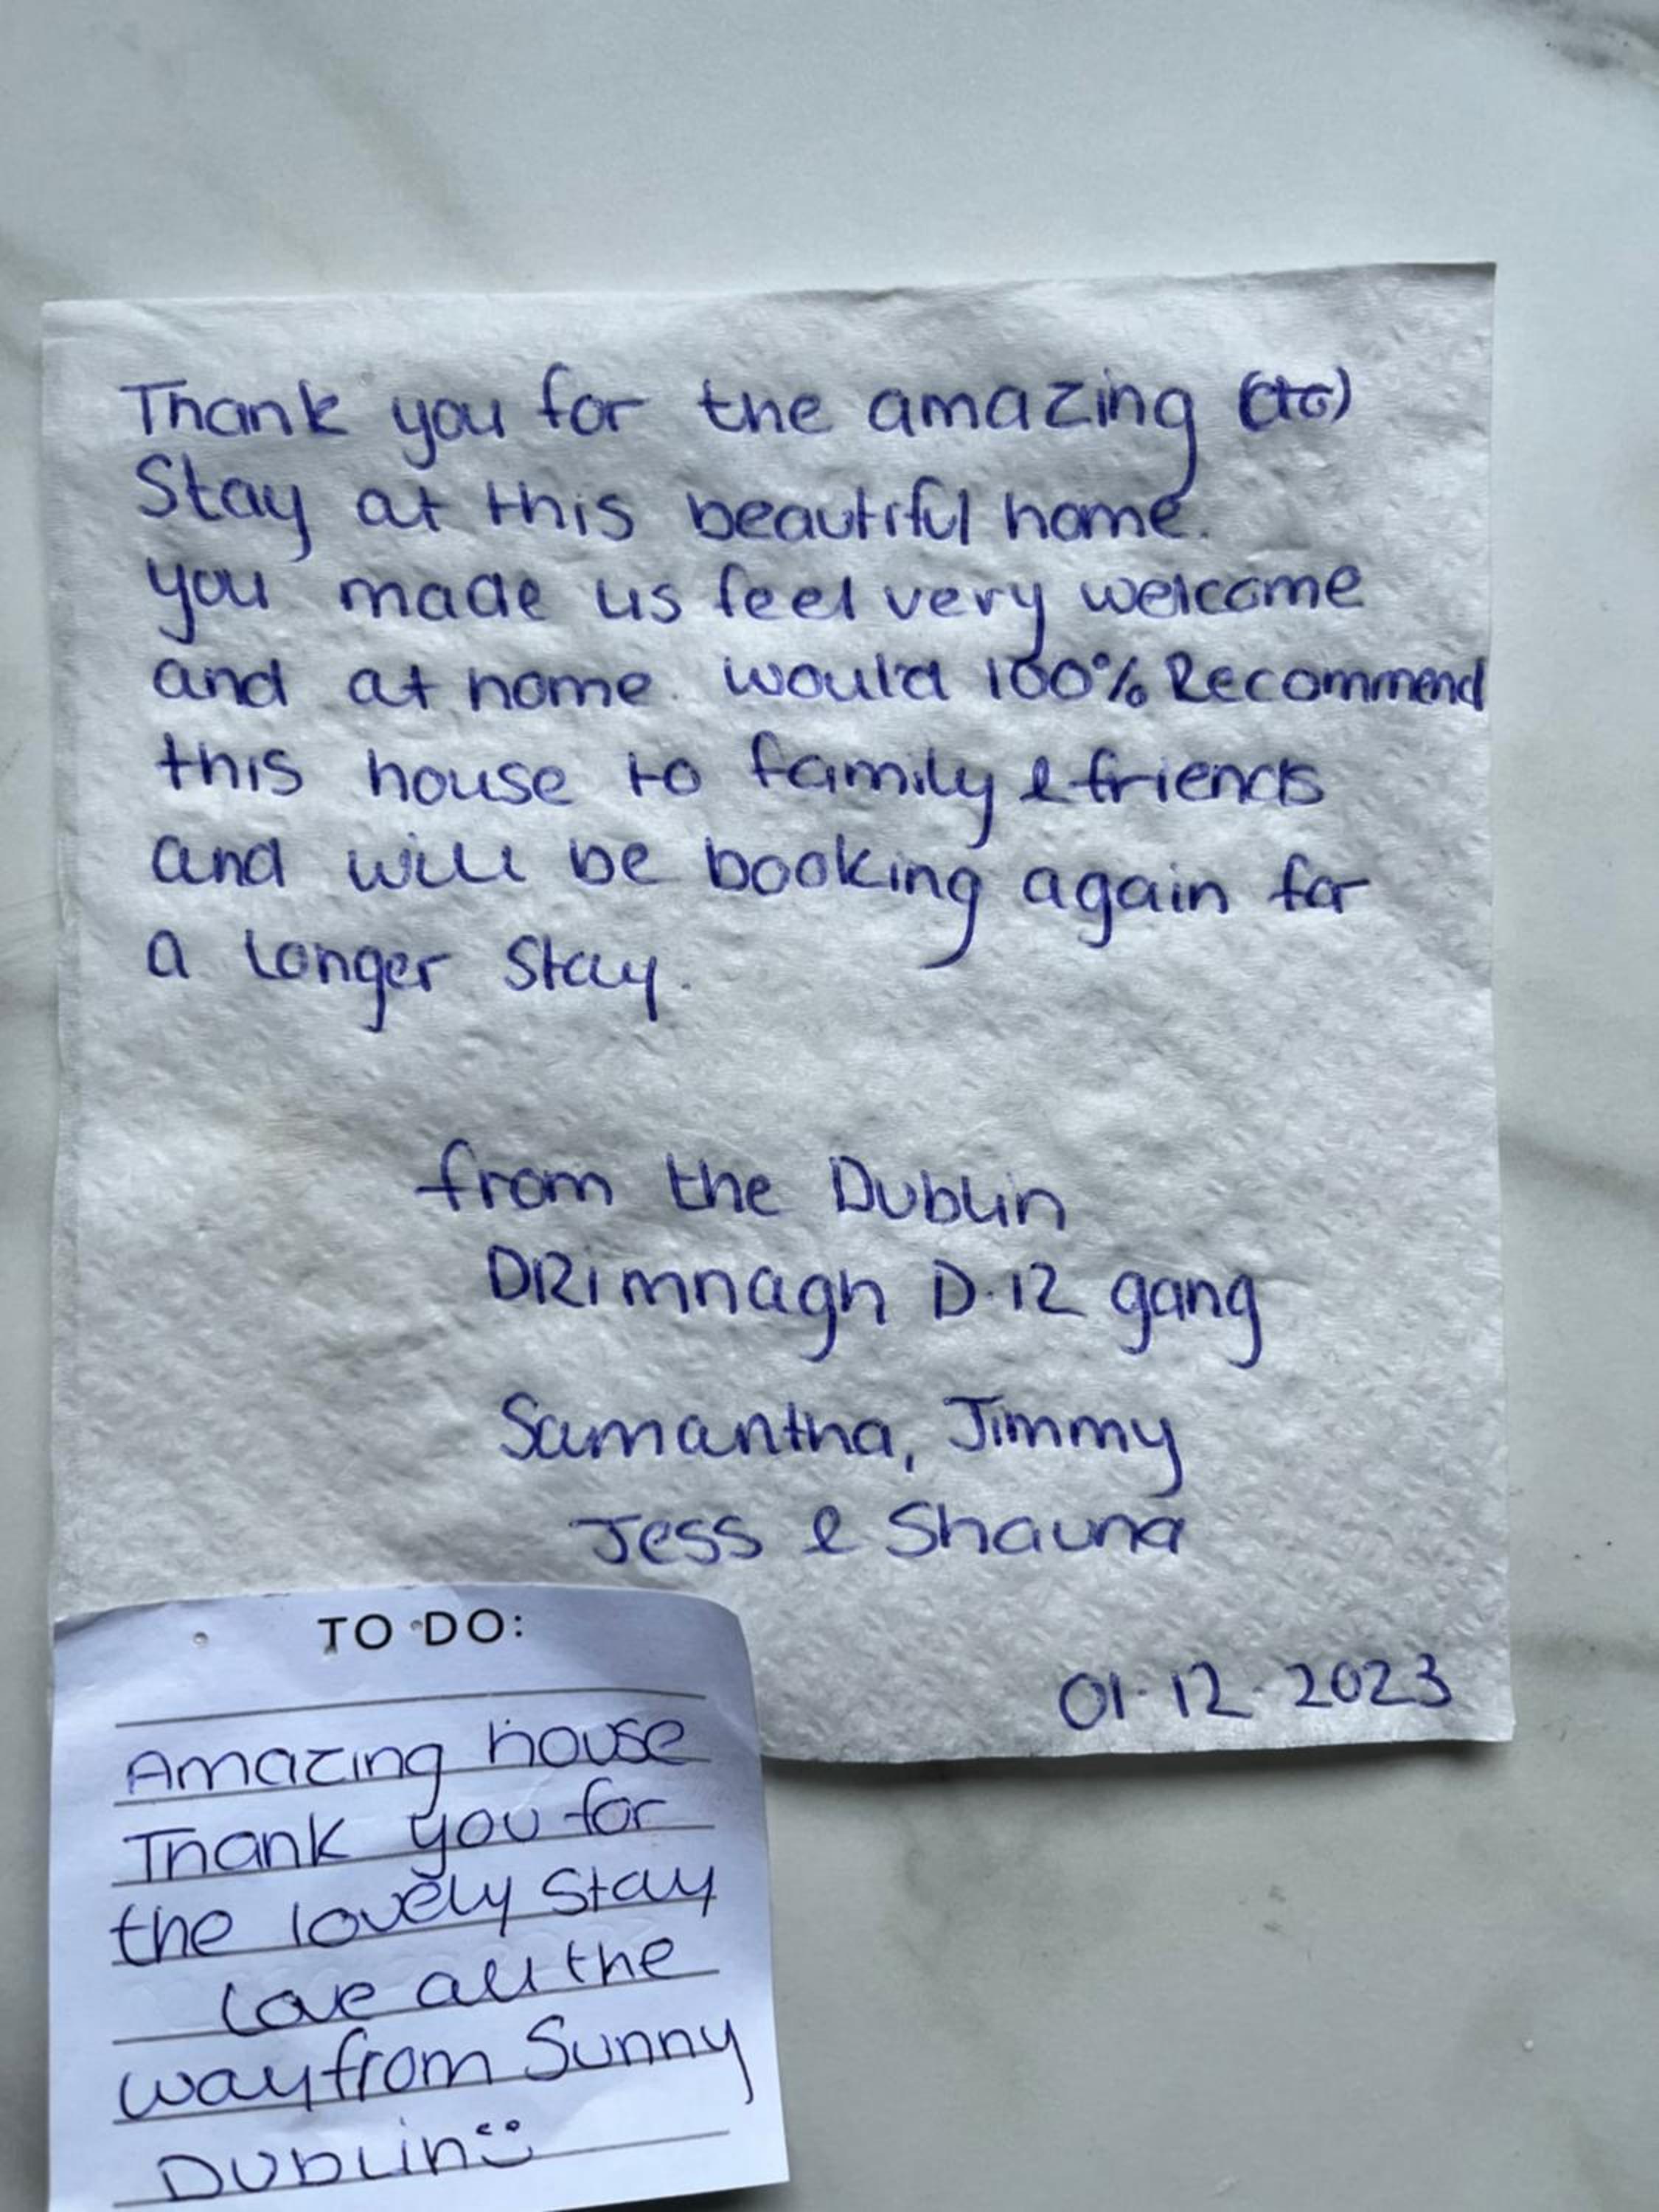 Thank you for the amazing
Stay at this beautiful home.
you made us feel very welcome
and at home. would 100% Recommend
this house to family & friends
and will be booking again for
a longer stay.
from the Dublin
DRimnagh D.12 gang
Samantha, Jimmy
Jess & Shauna
01.12.2023
TO DO:
Amazing house
Thank you for
the lovely stay
love all the
way from Sunny
Dublin